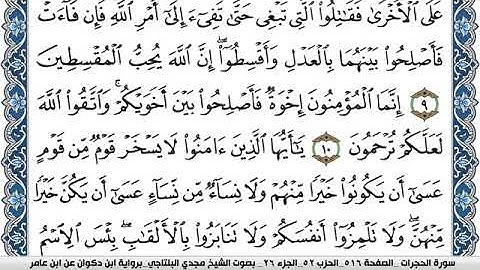 عَلَى ٱلْأُخْرَىٰ فَقَٰتِلُوا۟ ٱلَّتِى تَبْغِى حَتَّىٰ تَفِىٓءَ إِلَىٰٓ أَمْرِ ٱللَّهِ فَإِن فَآءَتْ
فَأَصْلِحُوا۟ بَيْنَهُمَا بِٱلْعَدْلِ وَأَقْسِطُوٓا۟ ۖ إِنَّ ٱللَّهَ يُحِبُّ ٱلْمُقْسِطِينَ
٩ إِنَّمَا ٱلْمُؤْمِنُونَ إِخْوَةٌ فَأَصْلِحُوا۟ بَيْنَ أَخَوَيْكُمْ ۚ وَٱتَّقُوا۟ ٱللَّهَ
لَعَلَّكُمْ تُرْحَمُونَ ١٠ يَٰٓأَيُّهَا ٱلَّذِينَ ءَامَنُوا۟ لَا يَسْخَرْ قَوْمٌ مِّن قَوْمٍ
عَسَىٰٓ أَن يَكُونُوا۟ خَيْرًا مِّنْهُمْ وَلَا نِسَآءٌ مِّن نِّسَآءٍ عَسَىٰٓ أَن يَكُنَّ خَيْرًا
مِّنْهُنَّ ۖ وَلَا تَلْمِزُوٓا۟ أَنفُسَكُمْ وَلَا تَنَابَزُوا۟ بِٱلْأَلْقَٰبِ ۖ بِئْسَ ٱلِٱسْمُ
سورة الحجرات_ الصفحة ٥١٦_ الحزب ٥٢_ الجزء ٢٦_ بصوت الشيخ مجدي البلتاجي_ برواية ابن ذكوان عن ابن عامر